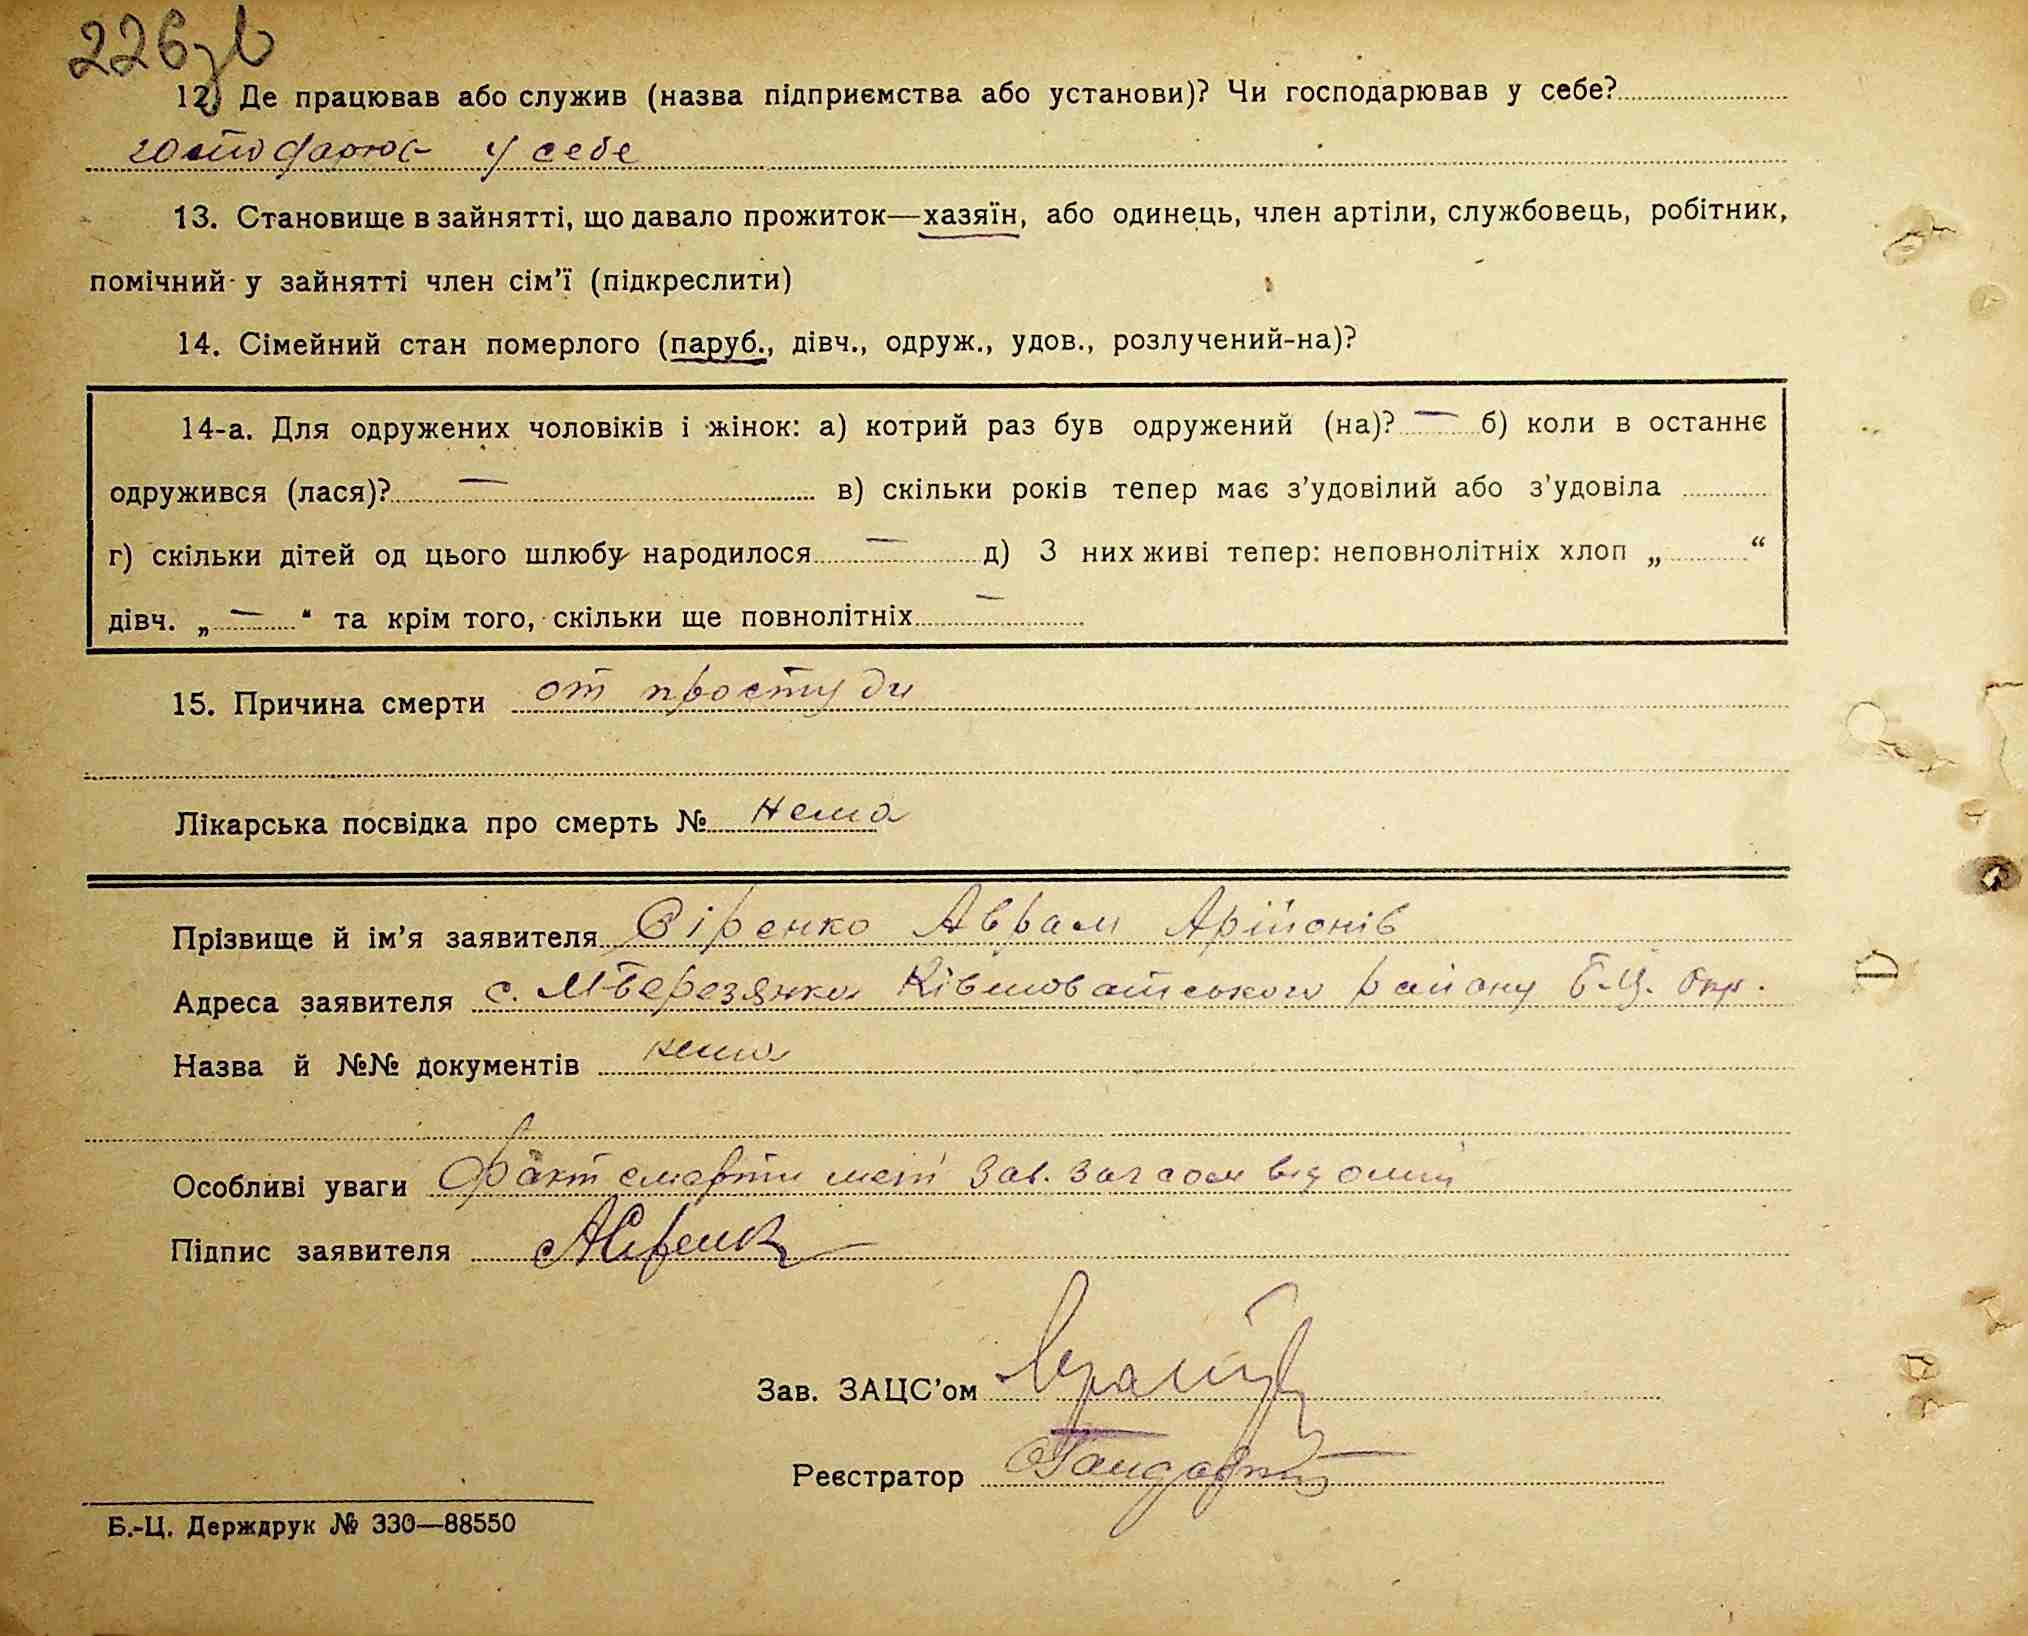 226зв
12) Де працював або служив (назва підприємства або установи)? Чи господарював у себе?
господарює у себе
13. Становище в зайнятті, що давало прожиток—хазяїн, або одинець, член артіли, службовець, робітник,
помічний у зайнятті член сім'ї (підкреслити)
14. Сімейний стан померлого (паруб., дівч., одруж., удов., розлучений-на)?
14-а. Для одружених чоловіків і жінок: а) котрий раз був одружений (на)? — б) коли в останнє
одружився (лася)? — в) скільки років тепер має з'удовілий або з'удовіла
г) скільки дітей од цього шлюбу народилося — д) З них живі тепер: неповнолітніх хлоп „ “
дівч. „ — “ та крім того, скільки ще повнолітніх —
15. Причина смерти от простуди
Лікарська посвідка про смерть № нема
Прізвище й ім'я заявителя Сіренко Аврам Арійонів
Адреса заявителя с. Мберезянка Ківшоватського району Б-Ц. Окр.
Назва й №№ документів нема
Особливі уваги Факт смерти мені Зав. Загсом відомий
Підпис заявителя АСіренк
Зав. ЗАЦС'ом
Реєстратор
Б.-Ц. Держдрук № 330—88550